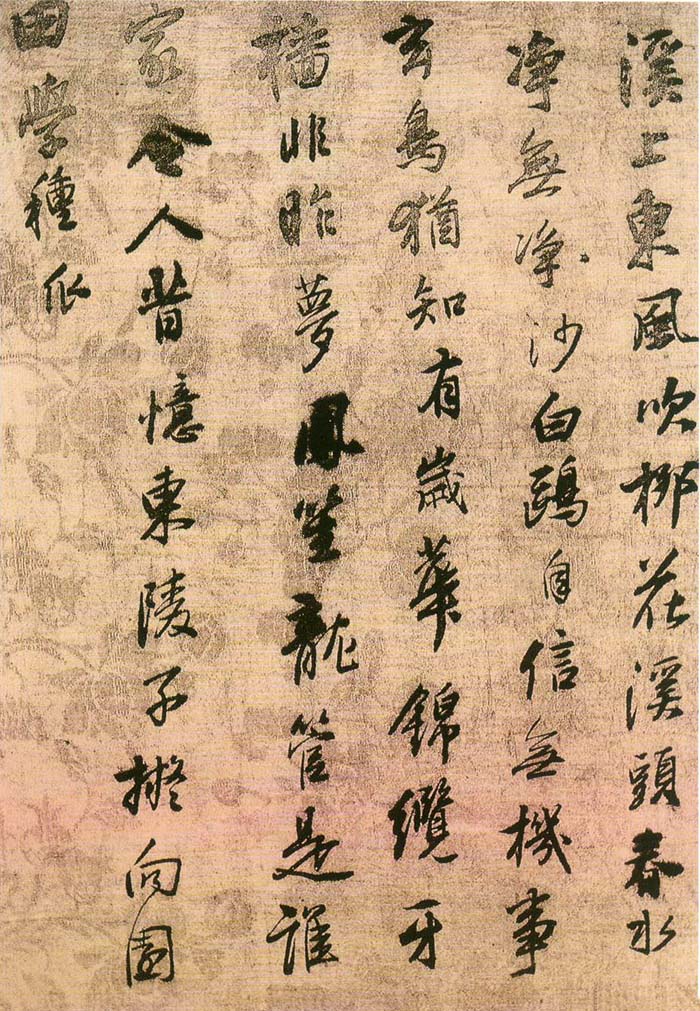 溪上東風吹桺花溪頭春水
净無净沙白鷗自信無機事
玄鳥猶知有歲華錦纜牙
檣非昨夢鳳笙龍管是誰
家令人昔憶東陵子擬向園
田學種瓜